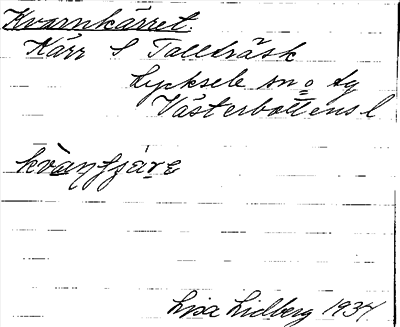 Kvarnkärret
Kärr S Tallträsk
Lycksele sn o tg
Västerbottens l
kvàṇfjàrɛ
Lisa Lidberg 1934